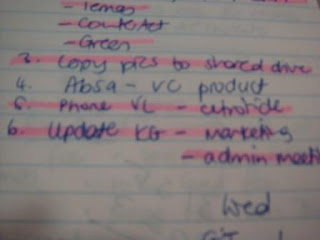 - Temas
- CounterAct
- Green
3. Copy pics to shared drive
4. Absa - VC product
5. Phone VL -
6. Update KG - marketing
- admin meeti
Wed